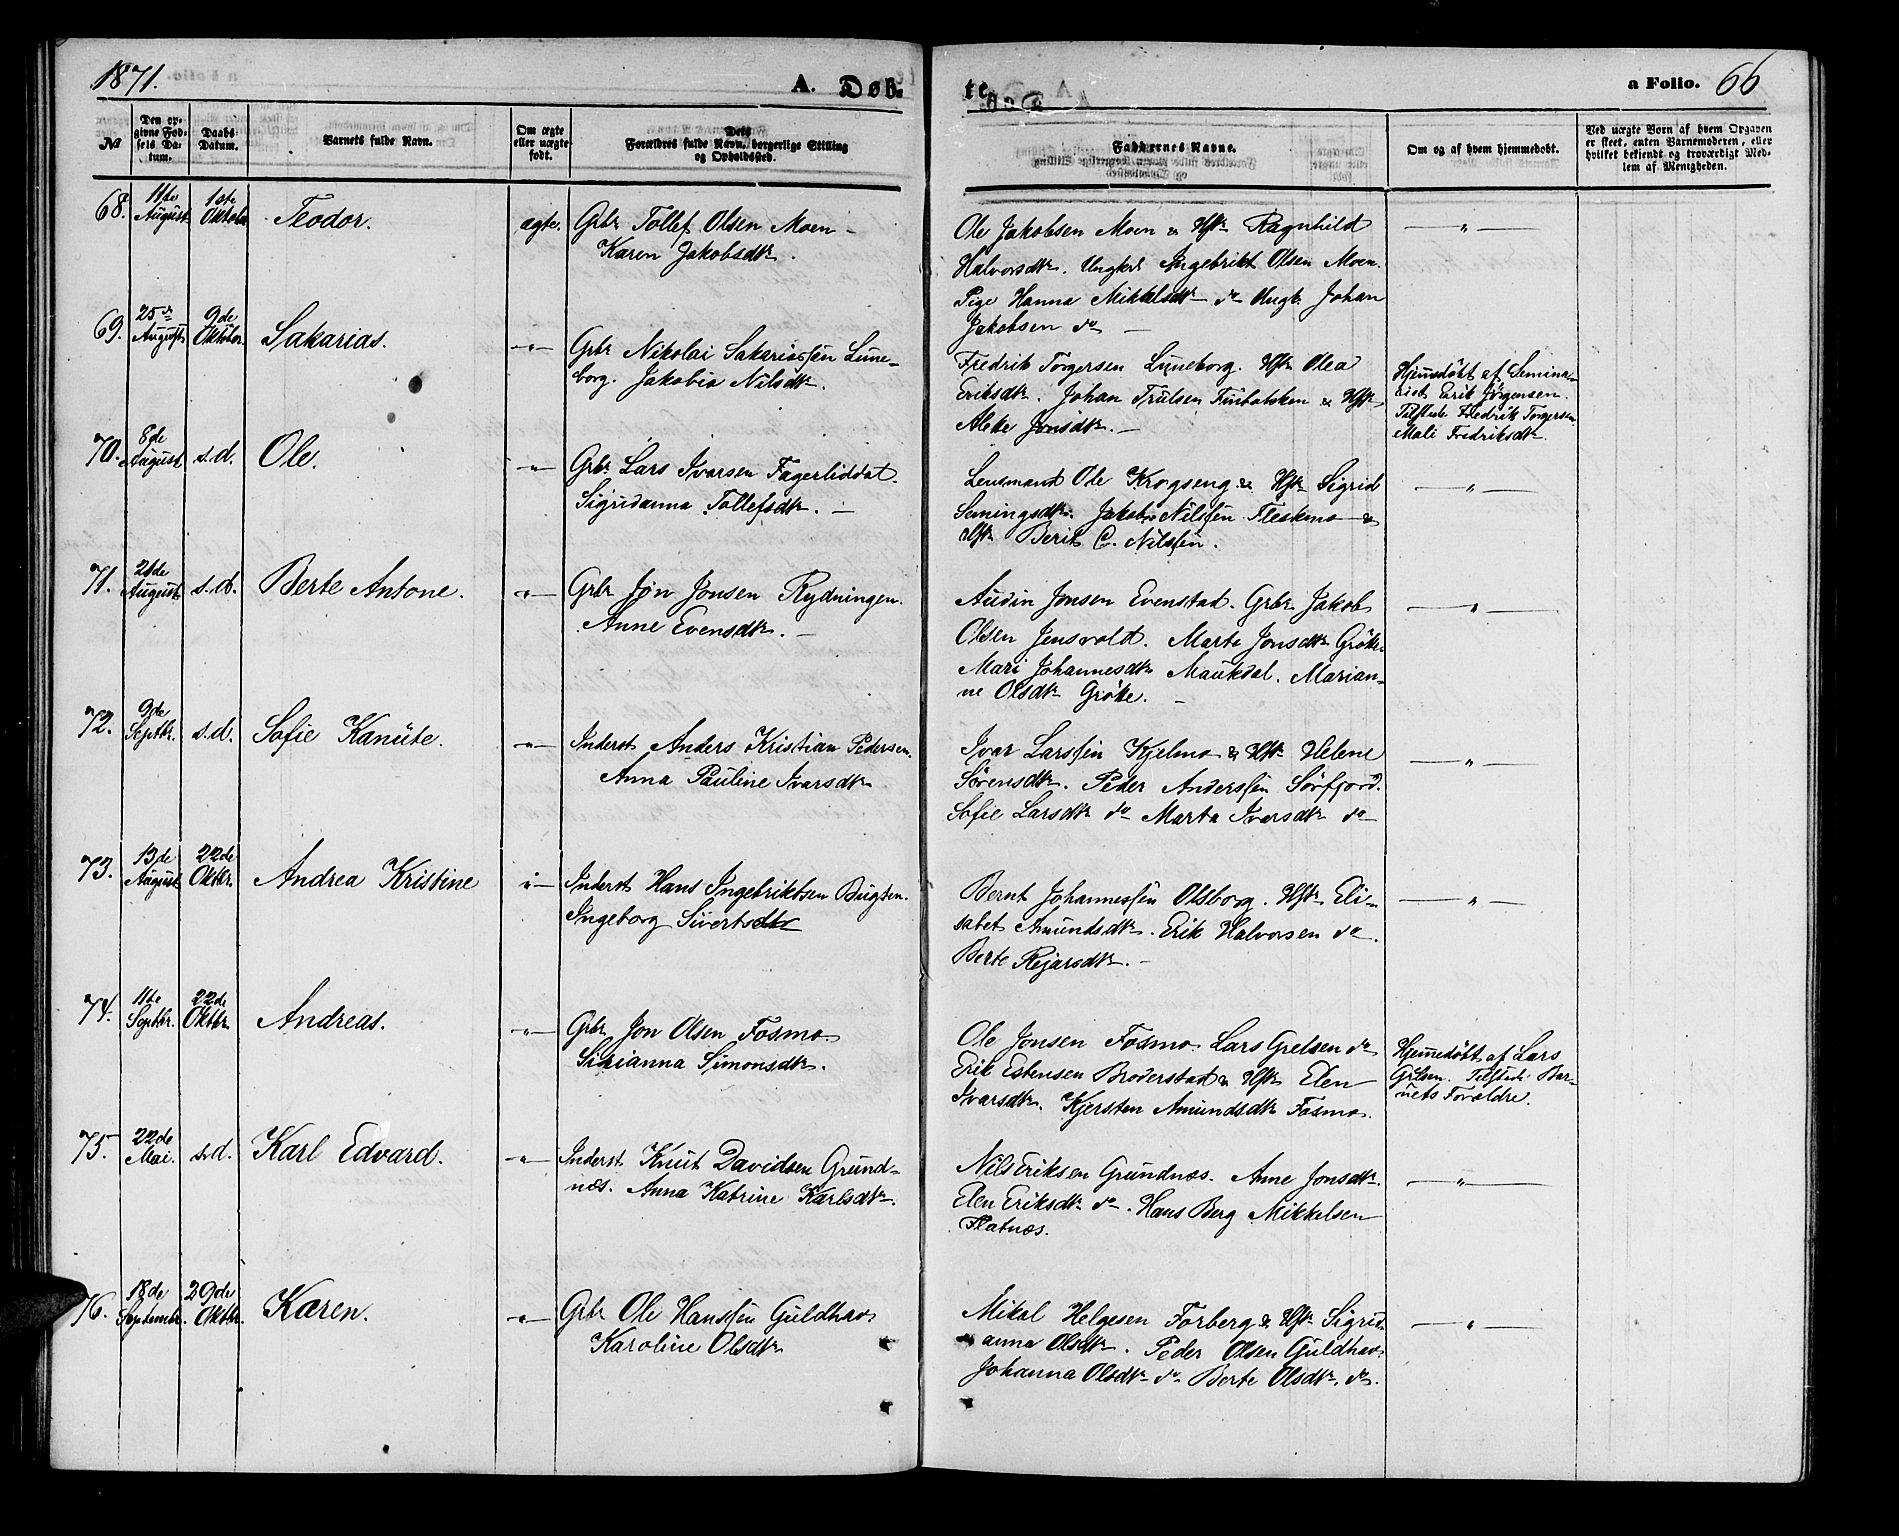 1871.
A. Døb-
te.
a Folio. 66
№
Den op-
givne Fød-
sels Da-
tum.
Daabs
Datum.
Barnets fulde Navn.
Om ægte
eller uægte
født.
Dets
Forældres fulde Navn, borgerlige Stilling
og Opholdssted.
Faddernes Navne.
Om og af hvem hjemmedøbt.
Ved uægte Børn af hvem Opgaven
er skeet, enten Barnemoderen, eller
hvilket bekjendt og troværdigt Med-
lem af Menigheden.
68. 11te August 1ste Oktober Teodor. ægte. Grbr Tollef Olsen Moen –
Karen Jakobsdtr.
Ole Jakobsen Moen & Hstr Ragnhild
Halvorsdtr. Ungkrl Ingebrikt Olsen Moen.
Pige Hanna Mikkelsdtr do Ungk. Johan
Jakobsen do —
— " —
69. 25de August 9de Oktober. Sakarias. — " — Grbr Nikolai Sakariassen Lune-
borg. Jakobia Nilsdtr.
Fredrik Torgersen Luneborg. Hstr Olea
Eriksdtr. Johan Trulsen Finbakken & Hstr
Aleke Jonsdtr. —
Hjemmedøbt af Semina-
rist Erik Jørgensen.
Tilstede Fredrik Torgersen
Mali Fredriksdtr.
70. 8de August s.d. Ole. — " — Grbr. Lars Ivarsen Fagerliddal.
Sigridanna Tollefsdtr. —
Lensmand Ole Krogseng & Hstr Sigrid
Semingsdtr. Jakob Nilssen Fleskmo &
Hstr Berit C. Nilssen.
— " —
71. 21de August s.d. Berte Antone. — " — Grbr Jon Jonsen Rydningen.
Anne Evensdtr. —
Audin Jonsen Evenstad. Grbr. Jakob
Olsen Jensvold. Marte Jonsdtr Grøtte.
Mari Johannesdtr Maukdal. Marian-
ne Olsdtr Grøtte. —
— " —
72. 9de Septbr. s.d. Sofie Kanute. — " — Inderst Anders Kristian Pedersen.
Anna Pauline Ivarsdtr
Ivar Larssen Kjelmo & Hstr Helene
Sørensdtr. Peder Anderssen Sørfjord.
Sofie Larsdtr do Marta Ivarsdtr do
— " —
73. 13de August 22de Oktbr. Andrea Kristine — " — Inderst Hans Ingebriktsen Bugten.
Ingeborg Sivertsdtr
Bernt Johannessen Olsborg. Hstr Eli-
sabet Amundsdtr. Erik Halvorsen do.
Berte Rejarsdtr. —
— " —
74. 11te Septbr. 22de Oktbr. Andreas. — " — Grbr Jon Olsen Fosmo.
Sirianna Simonsdtr.
Ole Jonsen Fosmo. Lars Grelsen do
Erik Estensen Broderstad & Hstr Elen
Ivarsdtr. Kjersten Amundsdtr Fosmo.
Hjemmedøbt af Lars
Grelsen. Tilstede Bar-
nets Forældre.
75. 22de Mai. s.d. Karl Edvard. — " — Inderst Knut Davidsen Grund-
næs. Anna Katrine Karlsdtr.
Nils Eriksen Grundnæs. Anne Jonsdtr.
Elen Eriksdtr do. Hans Berg Mikkelsen
Flatnæs.
— " —
76. 18de Septembr. 29de Oktbr. Karen. — " — Grbr Ole Hanssen Guldhav.
Karoline Olsdtr
Mikal Helgesen Forberg & Hstr Sigrid-
anna Olsdtr. Peder Olsen Guldhav.
Johanna Olsdtr do Berte Olsdtr. do.
— " —